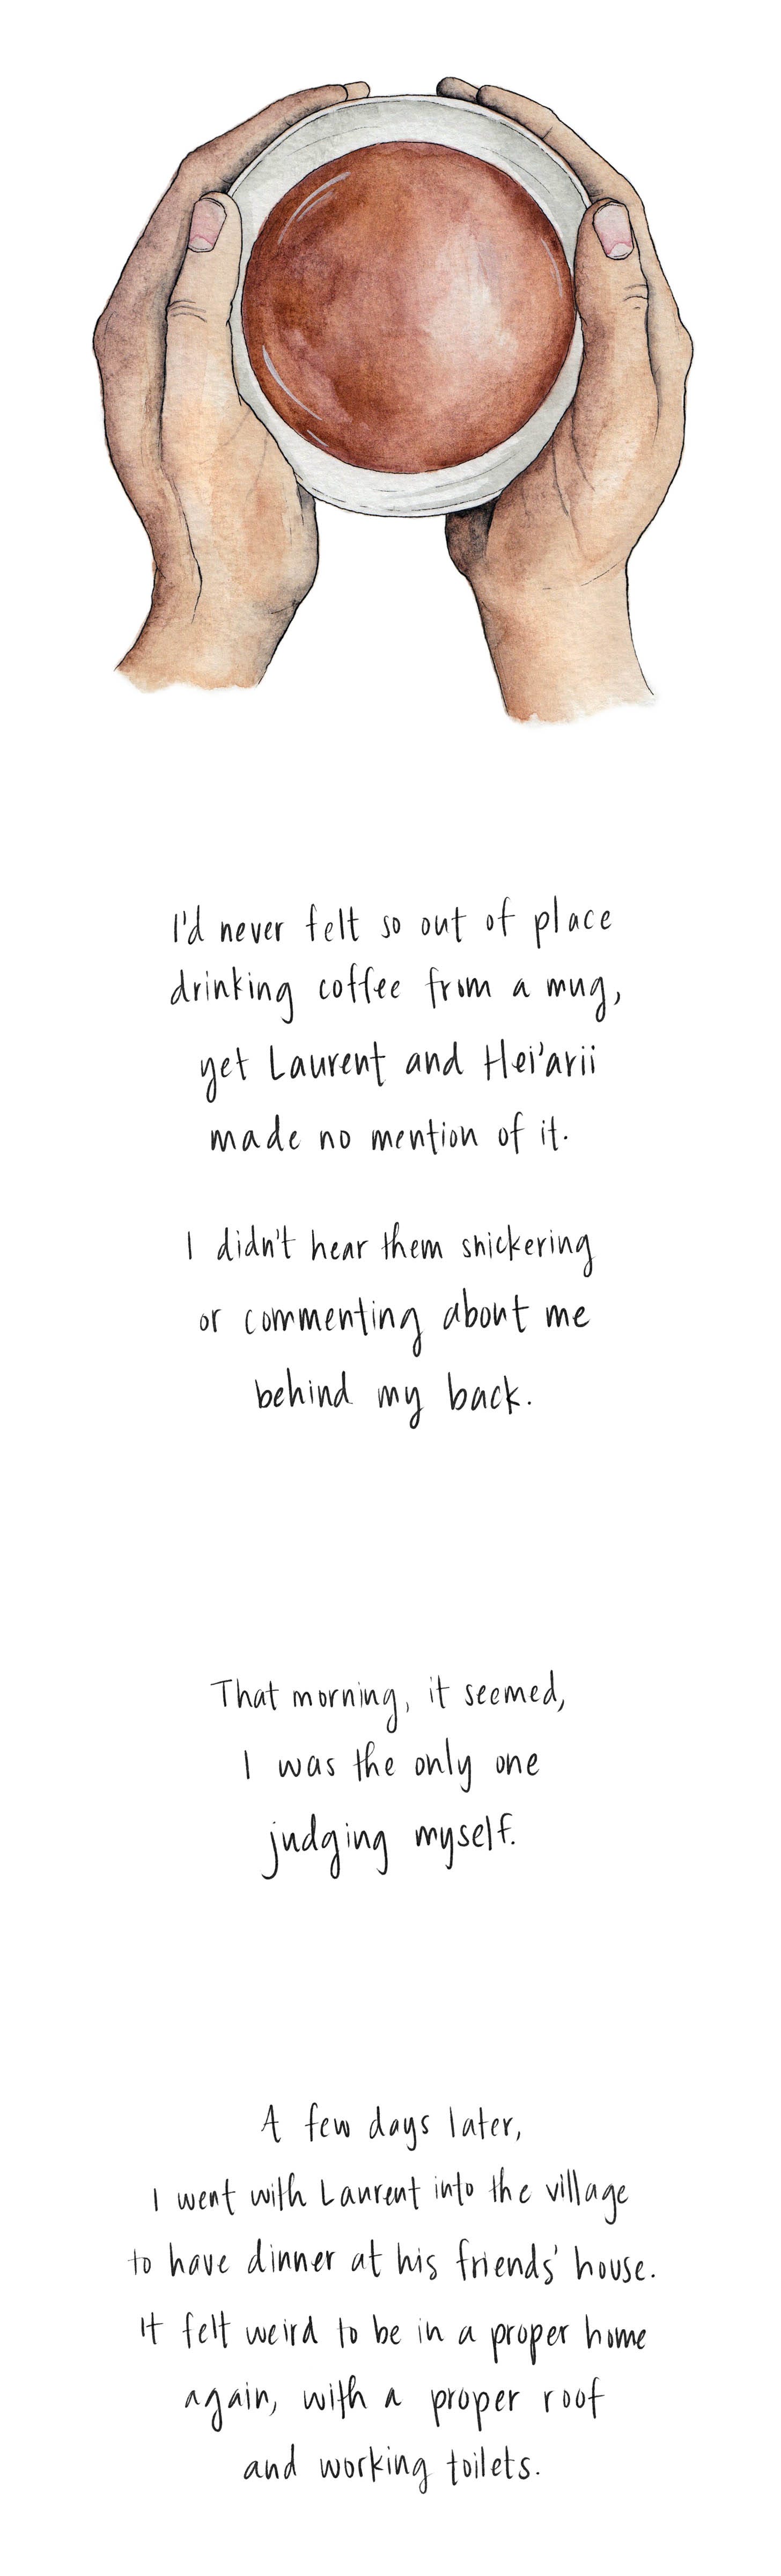 I'd never felt so out of place
drinking coffee from a mug,
yet Laurent and Hei'arii
made no mention of it.
I didn't hear them snickering
or commenting about me
behind my back.
That morning, it seemed,
I was the only one
judging myself.
A few days later,
I went with Laurent into the village
to have dinner at his friends' house.
It felt weird to be in a proper home
again, with a proper roof
and working toilets.